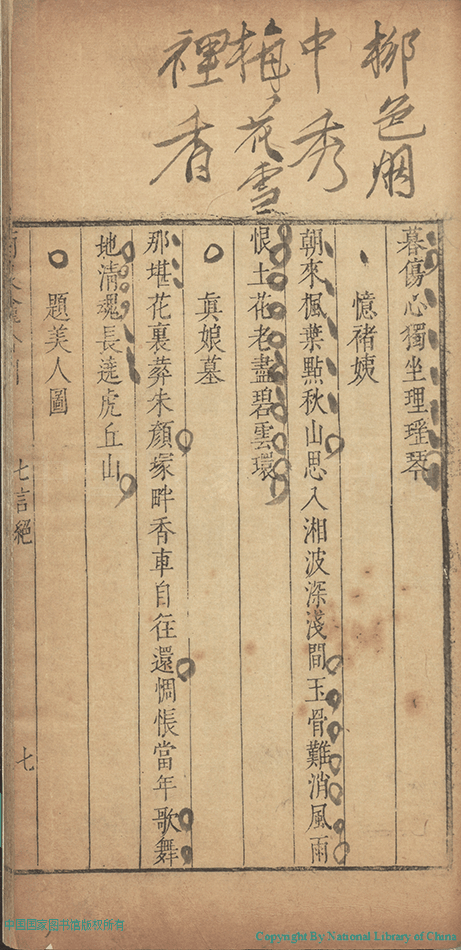 柳色烟
中秀
梅花雪
裡香
暮傷心獨坐理瑤琴
憶褚姨
朝來楓葉點秋山思入湘波深淺間玉骨難消風雨
恨土花老盡碧雲環
真娘墓
那堪花裏葬朱顏塚畔香車自往還惆悵當年歌舞
地清魂長遶虎丘山
題美人圖
七言絕
七
中国国家图书馆版权所有
Copyright By National Library of China